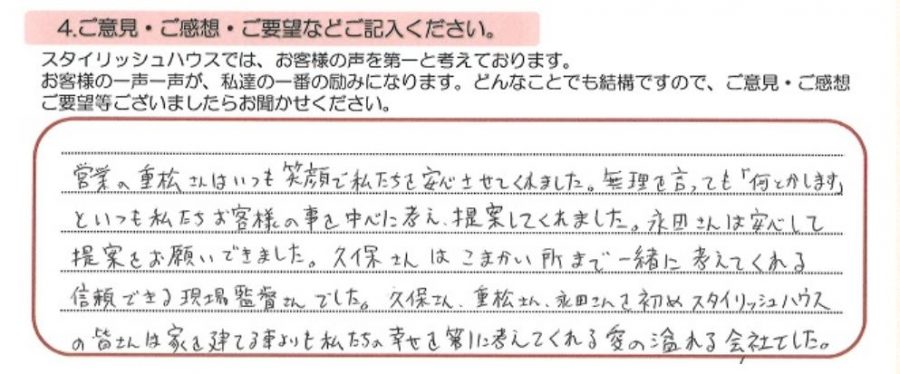 4.ご意見・ご感想・ご要望などご記入ください。
スタイリッシュハウスでは、お客様の声を第一と考えております。
お客様の一声一声が、私達の一番の励みになります。どんなことでも結構ですので、ご意見・ご感想
ご要望等ございましたらお聞かせください。
営業の重松さんはいつも笑顔で私たちを安心させてくれました。無理を言っても「何とかします」
といつも私たちお客様の事を中心に考え、提案してくれました。永田さんは安心して
提案をお願いできました。久保さんは こまかい所まで一緒に考えてくれる
信頼できる現場監督さんでした。久保さん、重松さん、永田さんを初めスタイリッシュハウス
の皆さんは家を建てる事よりも私たちの幸せを第1に考えてくれる愛の溢れる会社でした。